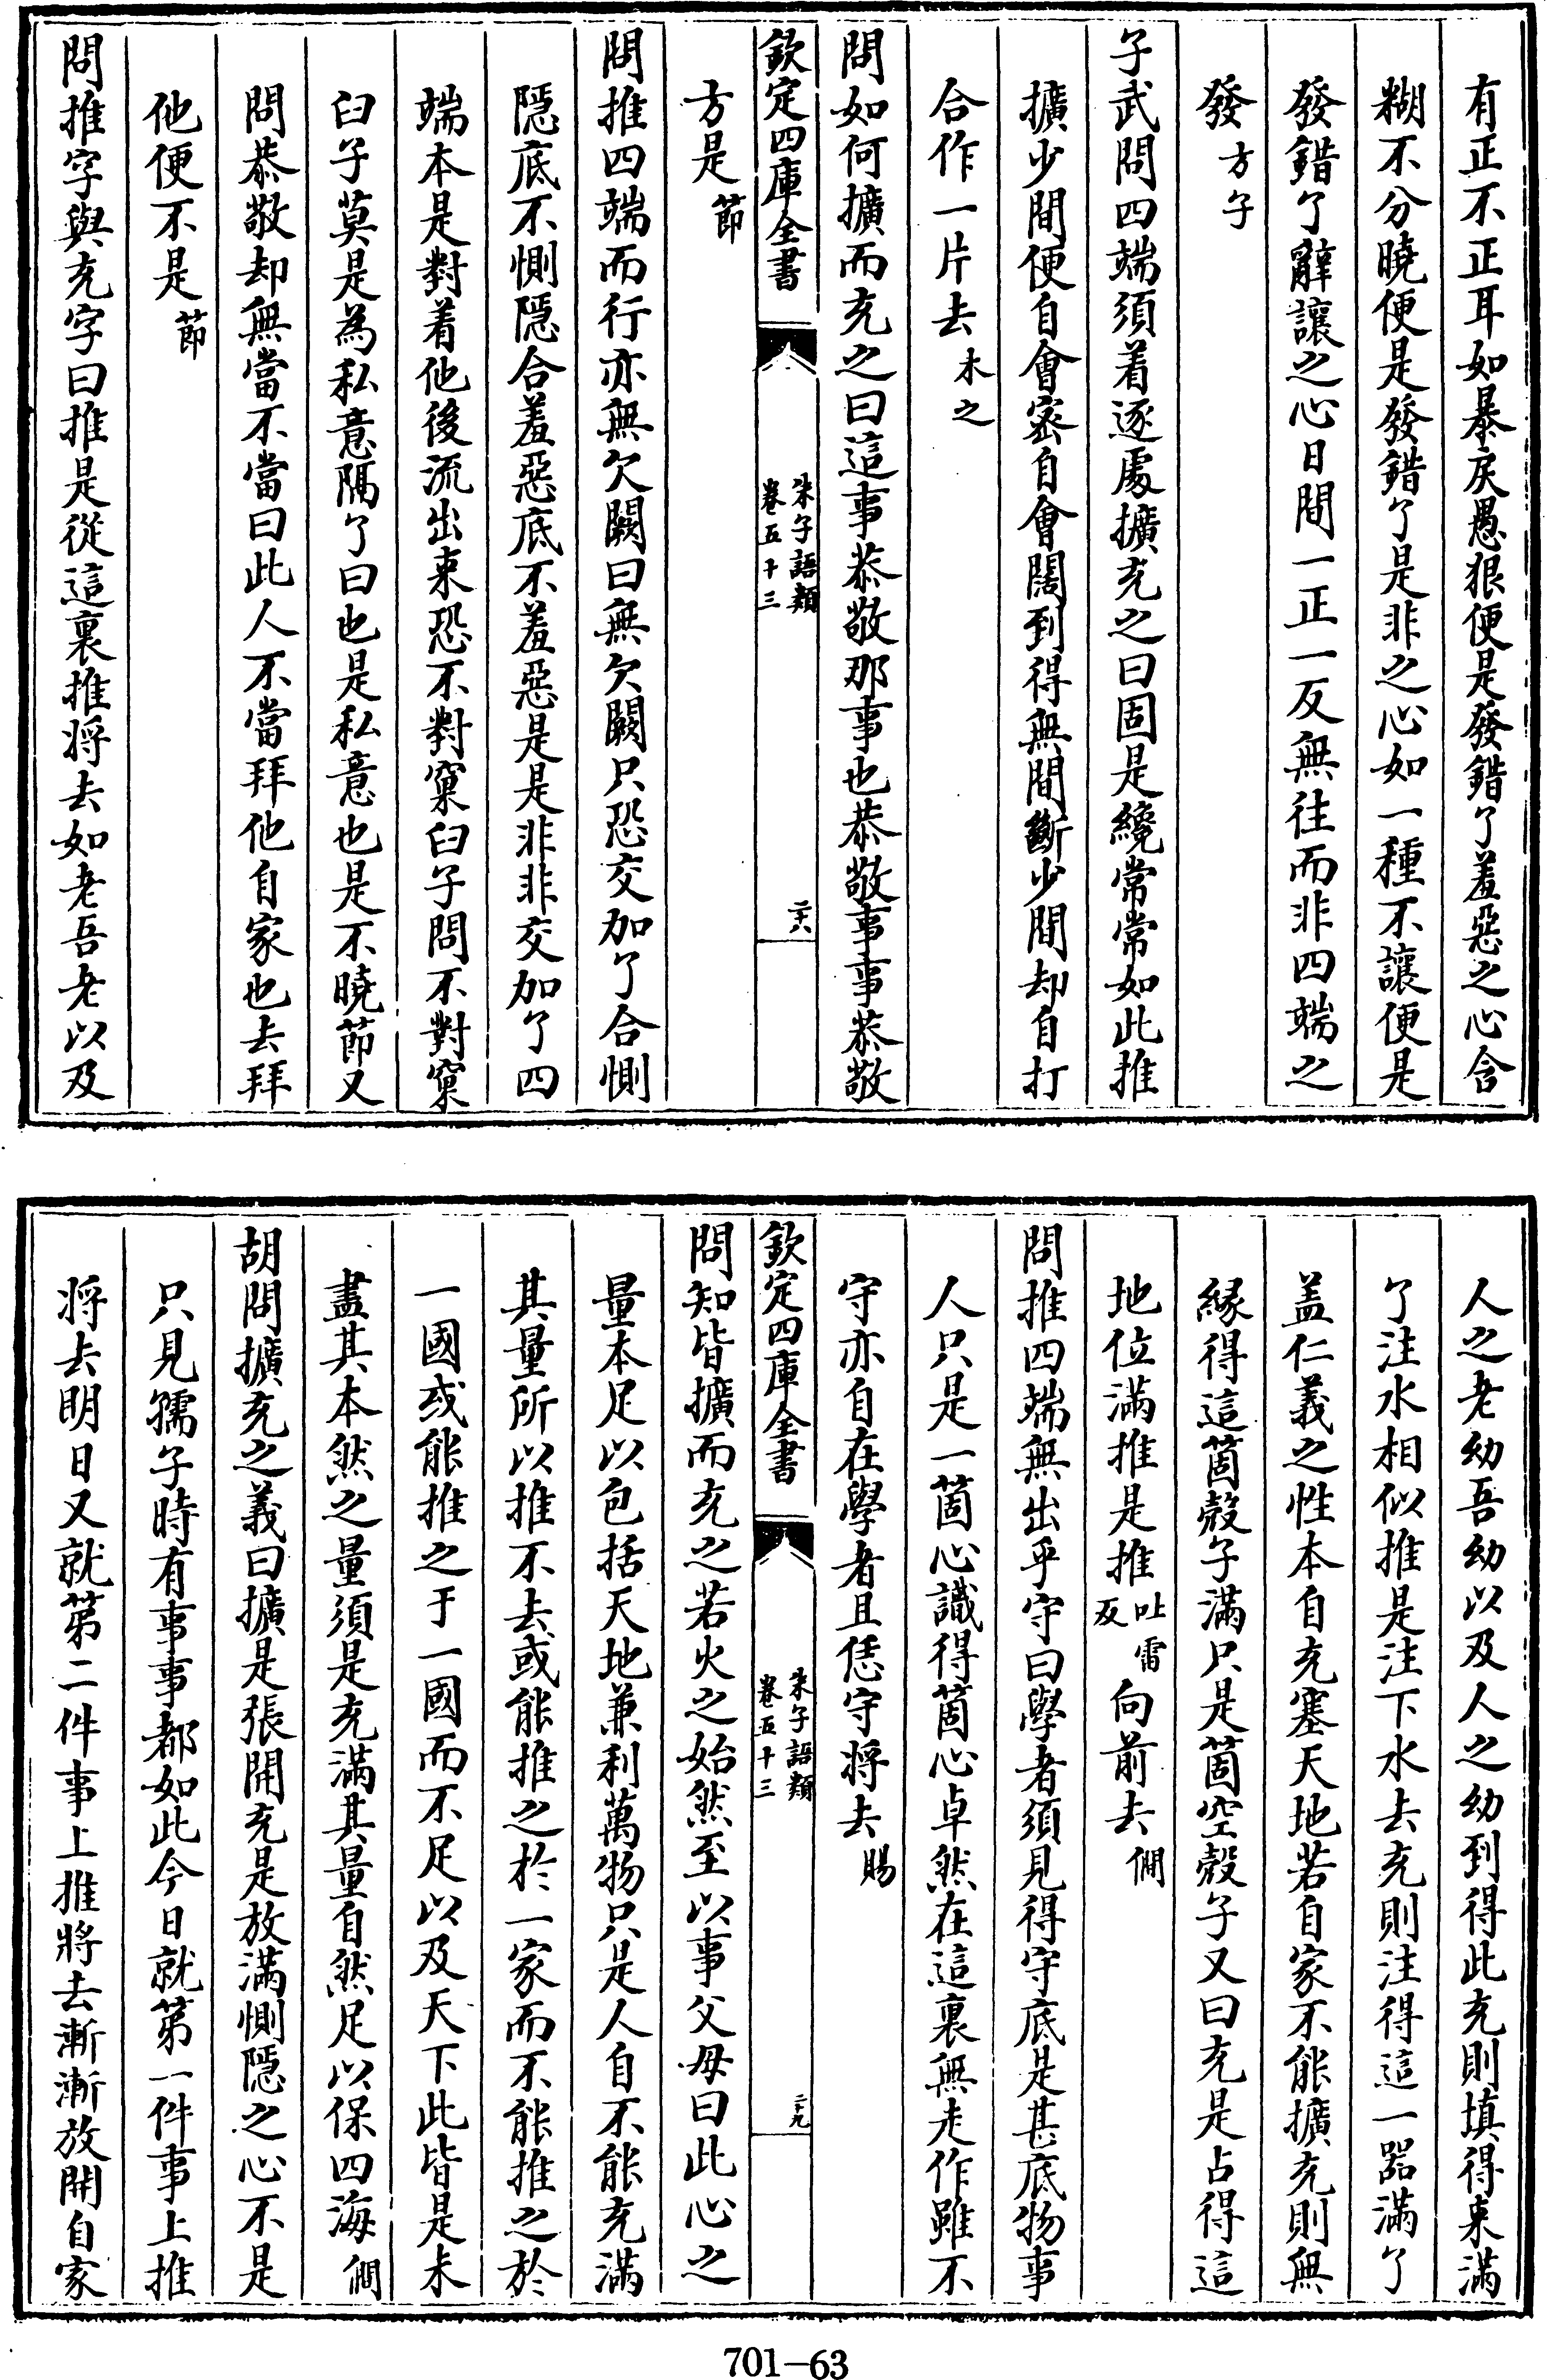 有正不正耳如暴戾愚狠便是發錯了羞惡之心含
糊不分曉便是發錯了是非之心如一種不讓便是
發錯了辭讓之心日間一正一反無往而非四端之
發方子
子武問四端須着逐處擴充之曰固是纔常常如此推
擴少間便自會密自會闊到得無間斷少間却自打
合作一片去木之
問如何擴而充之曰這事恭敬那事也恭敬事事恭敬
欽定四庫全書
朱子語類
卷五十三
二十八
方是節
問推四端而行亦無欠闕曰無欠闕只恐交加了合惻
隱底不惻隱合羞惡底不羞惡是是非非交加了四
端本是對着他後流出來恐不對窠臼子問不對窠
臼子莫是為私意隔了曰也是私意也是不曉節又
問恭敬却無當不當曰此人不當拜他自家也去拜
他便不是節
問推字與充字曰推是從這裏推將去如老吾老以及
人之老幼吾幼以及人之幼到得此充則填得來滿
了注水相似推是注下水去充則注得這一器滿了
盖仁義之性本自充塞天地若自家不能擴充則無
緣得這箇殼子滿只是箇空殼子又曰充是占得這
地位滿推是推吐雷反向前去僩
問推四端無出乎守曰學者須見得守底是甚底物事
人只是一箇心識得箇心卓然在這裏無走作雖不
守亦自在學者且恁守將去賜
欽定四庫全書
朱子語類
卷五十三
二十九
問知皆擴而充之若火之始然至以事父母曰此心之
量本足以包括天地兼利萬物只是人自不能充滿
其量所以推不去或能推之於一家而不能推之於
一國或能推之于一國而不足以及天下此皆是未
盡其本然之量須是充滿其量自然足以保四海僩
胡問擴充之義曰擴是張開充是放滿惻隱之心不是
只見孺子時有事事都如此今日就第一件事上推
將去明日又就第二件事上推將去漸漸放開自家
701-63